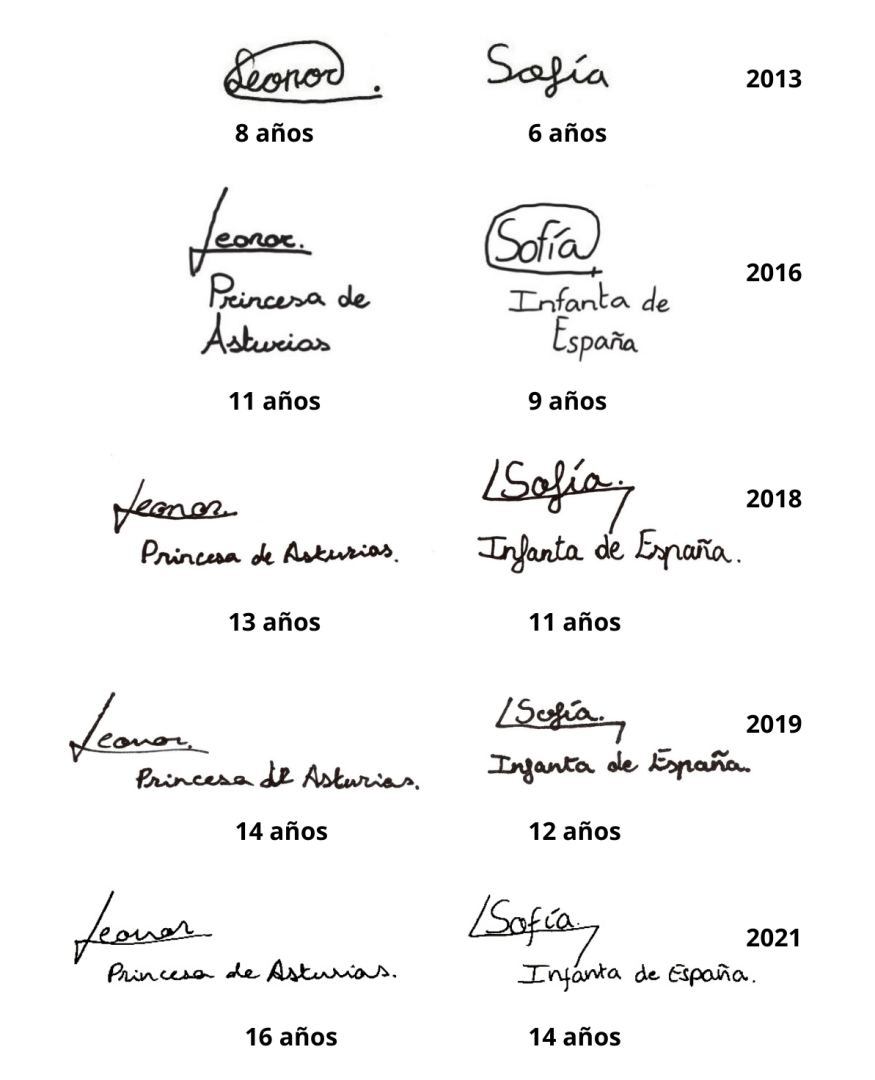 Leonor. Sofía 2013
8 años 6 años
Leonor. Sofía 2016
Princesa de Infanta de
Asturias España
11 años 9 años
Leonor. Sofía. 2018
Princesa de Asturias. Infanta de España.
13 años 11 años
Leonor. Sofía. 2019
Princesa de Asturias. Infanta de España.
14 años 12 años
Leonor Sofía. 2021
Princesa de Asturias. Infanta de España.
16 años 14 años